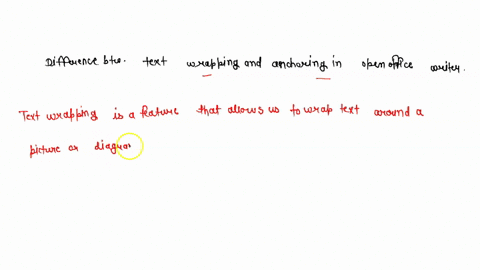 Difference btw. text wrapping and anchoring in open office writer.
Text wrapping is a feature that allows us to wrap text around a
picture or diagra